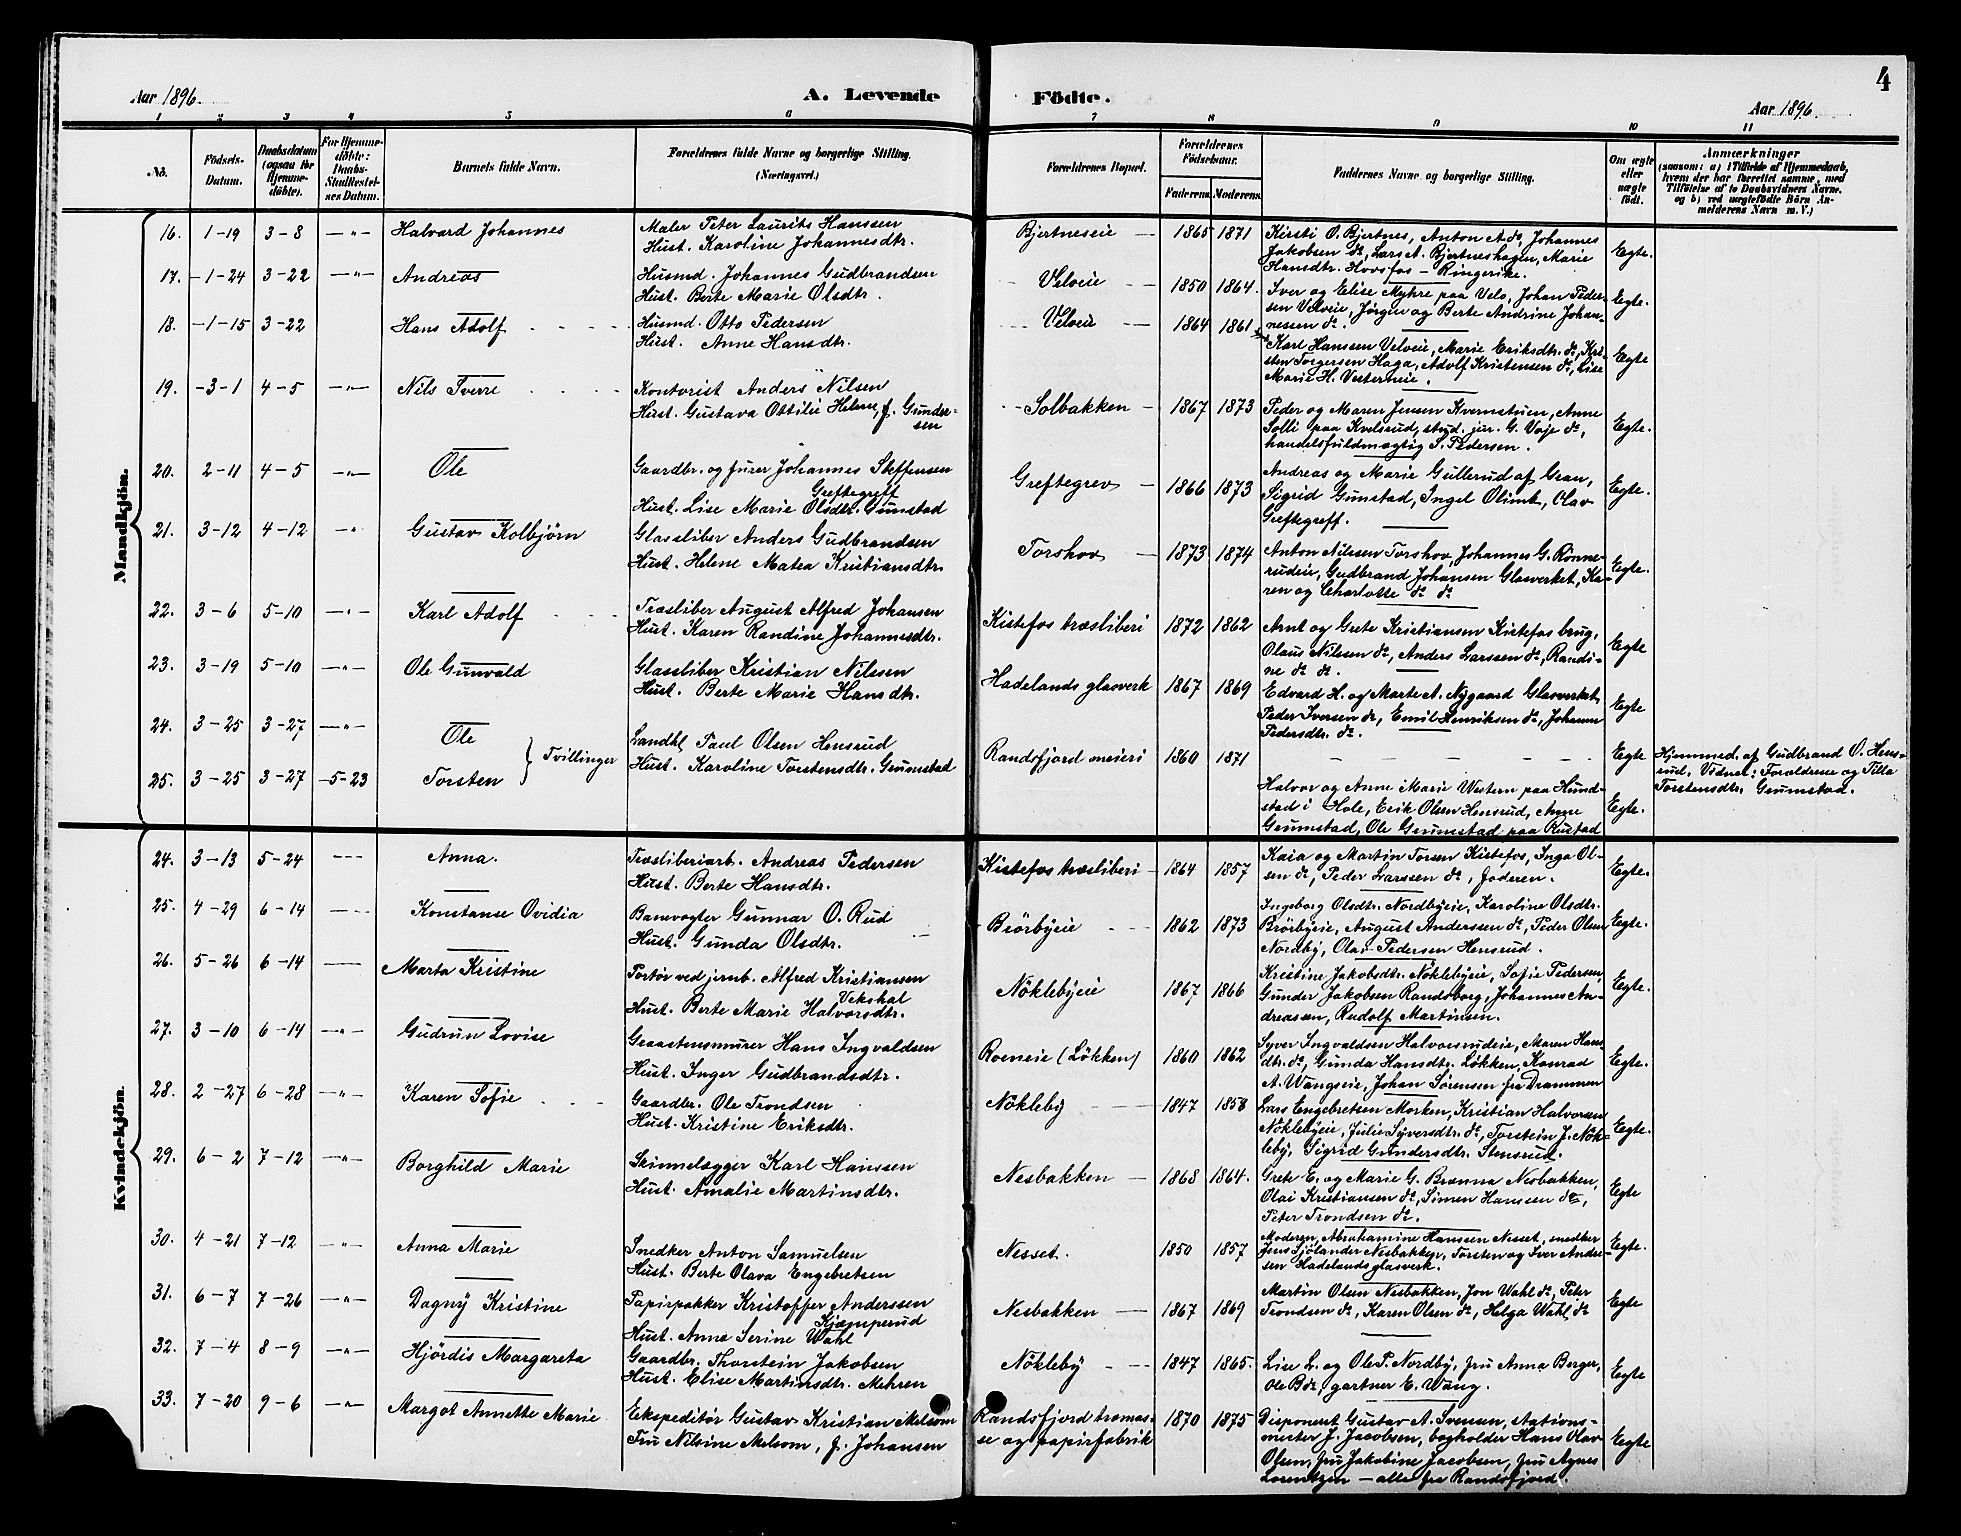 4
Aar 1896.
A. Levende
Födte.
Aar 1896
1 2 3 4 5 6 7 8 9 10 11
No.
Födsels-Datum.
Daabsdatum (ogsaa for Hjemmedöbte).
For Hjemmedöbte: Daabs-Stadfæstelses Datum.
Barnets fulde Navn.
Forældrenes fulde Navne og borgerlige Stilling.
(Næringsvei.)
Forældrenes Bopæl.
Forældrenes Födselsaar.
Faderens Moderens
Faddernes Navne og borgerlige Stilling.
Om ægte eller uægte födt.
Anmærkninger
(saasom: a) i Tilfælde af Hjemmedaab,
hvem der har forrettet samme, med
Tilföielse af to Daabsvidners Navne.
og b) ved uægtefödte Börn Anmelderens Navn m. V.)
Mandkjön.
16. 1-19 3-8 —"— Halvard Johannes
Maler Peter Laurits Hanssen
Hust. Karoline Johannesdtr.
Bjertneseie — 1865 1871
Kirsti O. Bjertnes, Anton A. do, Johannes
Jakobsen do, Lars A. Bjertneshagen, Marie
Hansdtr. Hovsfos — Ringerike.
Egte.
17. -1-24 3-22 —"— Andreas
Husmd. Johannes Gudbrandsen
Hust. Berte Marie Olsdtr.
Velveie — 1850 1864.
Iver og Elise Myhre paa Velo, Johan Peder-
sen Velveie, Jørgen og Berte Andrine Johan-
nessen do.
Egte.
18. -1-15 3-22 Hans Adolf
Husmd. Otto Pedersen
Hust. Anne Hansdtr.
Velveie — 1864 1861
Karl Hanssen Velveie, Marie Eriksdtr. do, Kri-
sten Torgersen Haga, Adolf Kristensen do, Lise
Marie H. Vestereie.
Egte
19. -3-1 4-5 —"— Nils Sverre
Kontorist Anders Nilsen
Hust. Gustava Ottilie Helene, f. Gunder-
sen
Solbakken — 1867 1873
Peder og Maren Jensen Kvernstuen, Anne
Solli paa Kvelsrud, stud. jur. G. Voje do,
handelsfuldmægtig S. Pedersen.
Egte.
20. 2-11 4-5 —"— Ole
Gaardbr. og Jurer Johannes Steffensen
Greftegreff
Hust. Lise Marie Olsdtr. Gunstad
Greftegrev — 1866 1873
Andreas og Marie Gullerud af Gran,
Sigrid Gunstad, Ingel Olimb, Olav
Greftegreff.
Egte.
21. 3-12 4-12 —"— Gustav Kolbjørn
Glassliber Anders Gudbrandsen
Hust. Helene Matea Kristiansdtr.
Torshov — 1873 1874
Anton Nilssen Torshov, Johannes G. Rønne-
rudeie, Gudbrand Johansen Glasverket, Ka-
ren og Charlotte do do
Egte.
22. 3-6 5-10 —"— Karl Adolf
Træsliber August Alfred Johansen
Hust. Karen Randine Johannesdtr.
Kistefos træsliberi 1872 1862
Arnt og Grete Kristiansen Kistefos brug,
Olaus Nilsen do, Anders Larssen do, Randi-
ne do do.
Egte
23. 3-19 5-10 —"— Ole Gunvald
Glassliber Kristian Nilssen
Hust. Berte Marie Hansdtr.
Hadelands glasverk 1867 1869
Edvard H. og Marte A. Nygaard Glasverket,
Peder Iversen do, Emil Henriksen do, Johanne
Pedersdtr. do.
Egte
24. 3-25 3-27 —"— Ole
Landhl. Paul Olsen Hensrud
Randsfjord meieri 1860 1871
— — — — —
Egte
Hjemmed. af Gudbrand O. Hens-
rud. Vidner: Forældrene og Tilla
Torstensdtr. Grunstad.
25. 3-25 3-27 -5-23 Torsten } Tvillinger
Hust. Karoline Torstensdtr. Grumstad
Halvor og Anne Marie Western paa Hund-
stad i Hole, Erik Olsen Hensrud, Anne
Grumstad, Ole Grumstad paa Rustad
Egte.
Kvindekjön.
24. 3-13 5-24 --- Anna.
Træsliberiarb. Andreas Pedersen
Hust. Berte Hansdtr.
Kistefos træsliberi — 1864 1857
Kaia og Martin Torsen Kistefos, Inga Ol-
sen do, Peder Larssen do, Joderen.
Egte.
25. 4-29 6-14 — Konstanse Ovidia
Banevogter Gunnar O. Rud
Hust. Gunda Olsdtr.
Brörbyeie 1862 1873
Ingeborg Olsdtr. Nordbyeie, Karoline Olsdtr.
Brörbyeie, August Anderssen do, Peder Olsen
Nordby, Olav Pedersen Hensrud.
Egte.
26. 5-26 6-14 — Marta Kristine
Portør ved jernb. Alfred Kristiansen
Vekshal
Hust. Berte Marie Halvorsdtr.
Nöklebyeie 1867 1866
Kristine Jakobsdtr. Nöklebyeie, Sofie Pedersen,
Gunder Jakobsen Randsborg, Johannes An-
dreassen, Rudolf Martinsen.
Egte.
27. 3-10 6-14 —"— Gudrun Lovise
Graastensmurer Hans Ingvaldsen
Hust. Inger Gudbrandsdtr.
Roeneie (Løkken) 1860 1862
Syver Ingvaldsen Halvorsrudeie, Maren Hans-
dtr. do, Gunda Hansdtr. Løkken, Konrad
A. Wangseie, Johan Sørensen fra Drammen
Egte.
28. 2-27 6-28 —"— Karen Sofie
Gaardbr. Ole Trondsen
Hust. Kristine Eriksdtr.
Nökleby — 1847 1858
Lars Engebretsen Morken, Kristian Halvorsen
Nöklebyeie, Julie Syversdtr. do, Torstein J. Nök-
leby, Sigrid Gundersdtr. Stensrud.
Egte.
29. 6-2 7-12 —"— Borghild Marie
Skinnelægger Karl Hanssen
Hust. Amalie Martinsdtr.
Nesbakken — 1868 1864.
Grete E. og Marie G. Brænna Nesbakken,
Olai Kristiansen do, Simen Hanssen do,
Peter Trondsen do.
Egte
30. 4-21 7-12 —"— Anna Marie
Snedker Anton Samuelsen
Hust. Berte Olava Engebretsen
Nesset. 1850 1857
Moderen, Abrahamine Hanssen Nesset, snedker
Jens Sjölander Nesbakken, Torsten og Iver Ander-
sen Hadelands glasverk.
Egte.
31. 6-7 7-26 —"— Dagny Kristine
Papirpakker Kristoffer Anderssen
Kjæmperud
Hust. Anne Serine Wahl
Nesbakken — 1867 1869
Martin Olsen Nesbakken, Jon Wahl do, Peter
Trondsen do, Karen Olsen do, Helga Wahl do
Egte
32. 7-4 8-9 —"— Hjördis Margareta
Gaardbr. Thorstein Jakobsen
Hust. Elise Martinsdtr. Mehren
Nökleby — 1847 1865.
Lise L. og Ole P. Nordby, fru Anna Berger,
Ole B. do, gartner E. Wang.
Egte
33. 7-20 9-6 —"— Margot Annette Marie
Ekspeditör Gustav Kristian Melsom
Fru Nilsine Melsom, f. Johansen
Randsfjord træmas-
se og papirfabrik
1870 1875
Disponent Gustav A. Svensen, stations-
mester J. Jacobsen, bogholder Hans Olav
Olsen, fru Jakobine Jacobsen, fru Agnes
Lorentzen — alle fra Randsfjord.
Egte